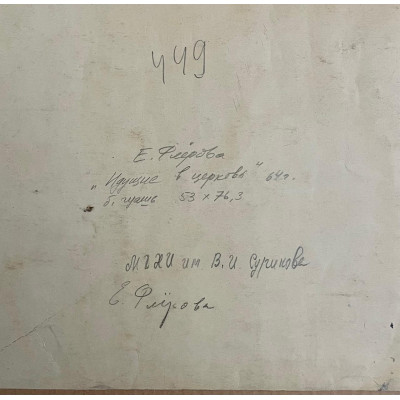 449
Е. Флёрова
"Идущие в церковь" 64г.
б, гуашь 53 х 76,3
МГХИ им В.И. Сурикова
Е. Флёрова